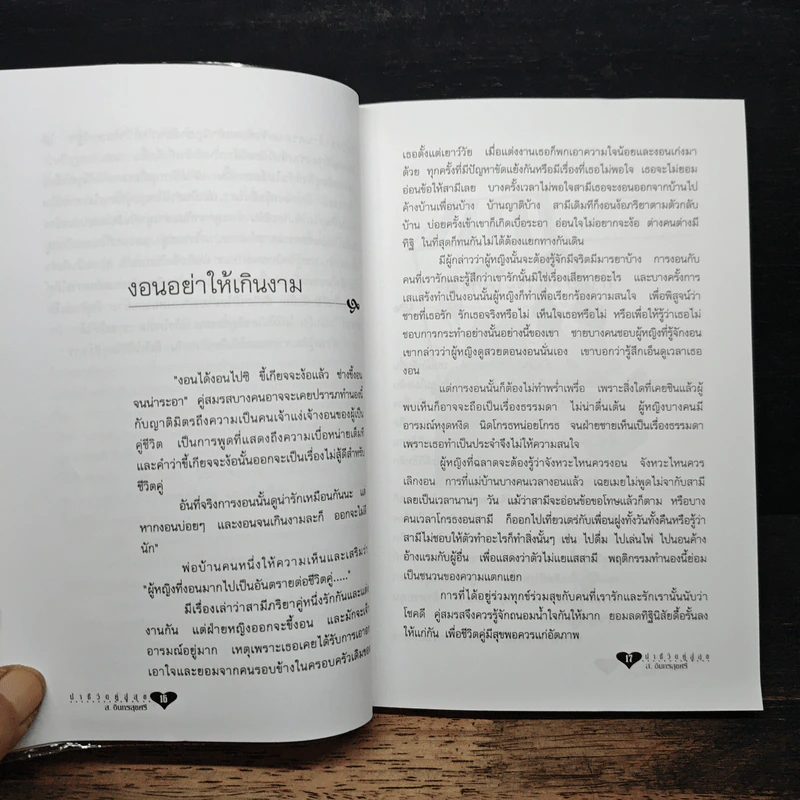 งอนอย่าให้เกินงาม
"งอนได้งอนไปซิ ขี้เกียจจะง้อแล้ว ช่างขี้งอน
จนน่าระอา" คู่สมรสบางคนอาจจะเคยปรารภทำนองนี้
กับญาติมิตรถึงความเป็นคนเจ้าแง่เจ้างอนของผู้เป็น
คู่ชีวิต เป็นการพูดที่แสดงถึงความเบื่อหน่ายเต็มที
และคำว่าขี้เกียจจะง้อนั้นออกจะเป็นเรื่องไม่สู้ดีสำหรับ
ชีวิตคู่
อันที่จริงการงอนนั้นดูน่ารักเหมือนกันนะ แต่
หากงอนบ่อยๆ และงอนจนเกินงามละก็ ออกจะไม่ดี
นัก"
พ่อบ้านคนหนึ่งให้ความเห็นและเสริมว่า
"ผู้หญิงที่งอนมากไปเป็นอันตรายต่อชีวิตคู่....."
มีเรื่องเล่าว่าสามีภริยาคู่หนึ่งรักกันและแต่ง
งานกัน แต่ฝ่ายหญิงออกจะขี้งอน และมักจะเจ้า
อารมณ์อยู่มาก เหตุเพราะเธอเคยได้รับการเอาอก
เอาใจและยอมจากคนรอบข้างในครอบครัวเดิมของ
น่าชีวิตอยู่คู่สุข 16
ส. อินทรสุขศรี
เธอตั้งแต่เยาว์วัย เมื่อแต่งงานเธอก็พกเอาความใจน้อยและงอนเก่งมา
ด้วย ทุกครั้งที่มีปัญหาขัดแย้งกันหรือมีเรื่องที่เธอไม่พอใจ เธอจะไม่ยอม
อ่อนข้อให้สามีเลย บางครั้งเวลาไม่พอใจสามีเธอจะงอนออกจากบ้านไป
ค้างบ้านเพื่อนบ้าง บ้านญาติบ้าง สามีเดิมทีก็งอนง้อภริยาตามตัวกลับ
บ้าน บ่อยครั้งเข้าเขาก็เกิดเบื่อระอา อ่อนใจไม่อยากจะง้อ ต่างคนต่างมี
ทิฐิ ในที่สุดก็ทนกันไม่ได้ต้องแยกทางกันเดิน
มีผู้กล่าวว่าผู้หญิงนั้นจะต้องรู้จักมีจริตมีมารยาบ้าง การงอนกับ
คนที่เรารักและรู้สึกว่าเขารักนั้นมิใช่เรื่องเสียหายอะไร และบางครั้งการ
เสแสร้งทำเป็นงอนนั้นผู้หญิงก็ทำเพื่อเรียกร้องความสนใจ เพื่อพิสูจน์ว่า
ชายที่เธอรัก รักเธอจริงหรือไม่ เห็นใจเธอหรือไม่ หรือเพื่อให้รู้ว่าเธอไม่
ชอบการกระทำอย่างนั้นอย่างนี้ของเขา ชายบางคนชอบผู้หญิงที่รู้จักงอน
เขากล่าวว่าผู้หญิงดูสวยตอนงอนนั่นเอง เขาบอกว่ารู้สึกเอ็นดูเวลาเธอ
งอน
แต่การงอนนั้นก็ต้องไม่ทำพร่ำเพรื่อ เพราะสิ่งใดที่เคยชินแล้วผู้
พบเห็นก็อาจจะถือเป็นเรื่องธรรมดา ไม่น่าตื่นเต้น ผู้หญิงบางคนมี
อารมณ์หงุดหงิด นิดโกรธหน่อยโกรธ จนฝ่ายชายเห็นเป็นเรื่องธรรมดา
เพราะเธอทำเป็นประจำจึงไม่ให้ความสนใจ
ผู้หญิงที่ฉลาดจะต้องรู้ว่าจังหวะไหนควรงอน จังหวะไหนควร
เลิกงอน การที่แม่บ้านบางคนเวลางอนแล้ว เฉยเมยไม่พูดไม่จากับสามี
เลยเป็นเวลานานๆ วัน แม้ว่าสามีจะอ่อนข้อขอโทษแล้วก็ตาม หรือบาง
คนเวลาโกรธงอนสามี ก็ออกไปเที่ยวเตร่กับเพื่อนฝูงทั้งวันทั้งคืนหรือรู้ว่า
สามีไม่ชอบให้ตัวทำอะไรก็ทำสิ่งนั้นๆ เช่น ไปดื่ม ไปเล่นไพ่ ไปนอนค้าง
อ้างแรมกับผู้อื่น เพื่อแสดงว่าตัวไม่แยแสสามี พฤติกรรมทำนองนี้ย่อม
เป็นชนวนของความแตกแยก
การที่ได้อยู่ร่วมทุกข์ร่วมสุขกับคนที่เรารักและรักเรานั้นนับว่า
โชคดี คู่สมรสจึงควรรู้จักถนอมน้ำใจกันให้มาก ยอมลดทิฐินิสัยดื้อรั้นลง
ให้แก่กัน เพื่อชีวิตคู่มีสุขพอควรแก่อัตภาพ
17 น่าชีวิตอยู่คู่สุข
ส. อินทรสุขศรี